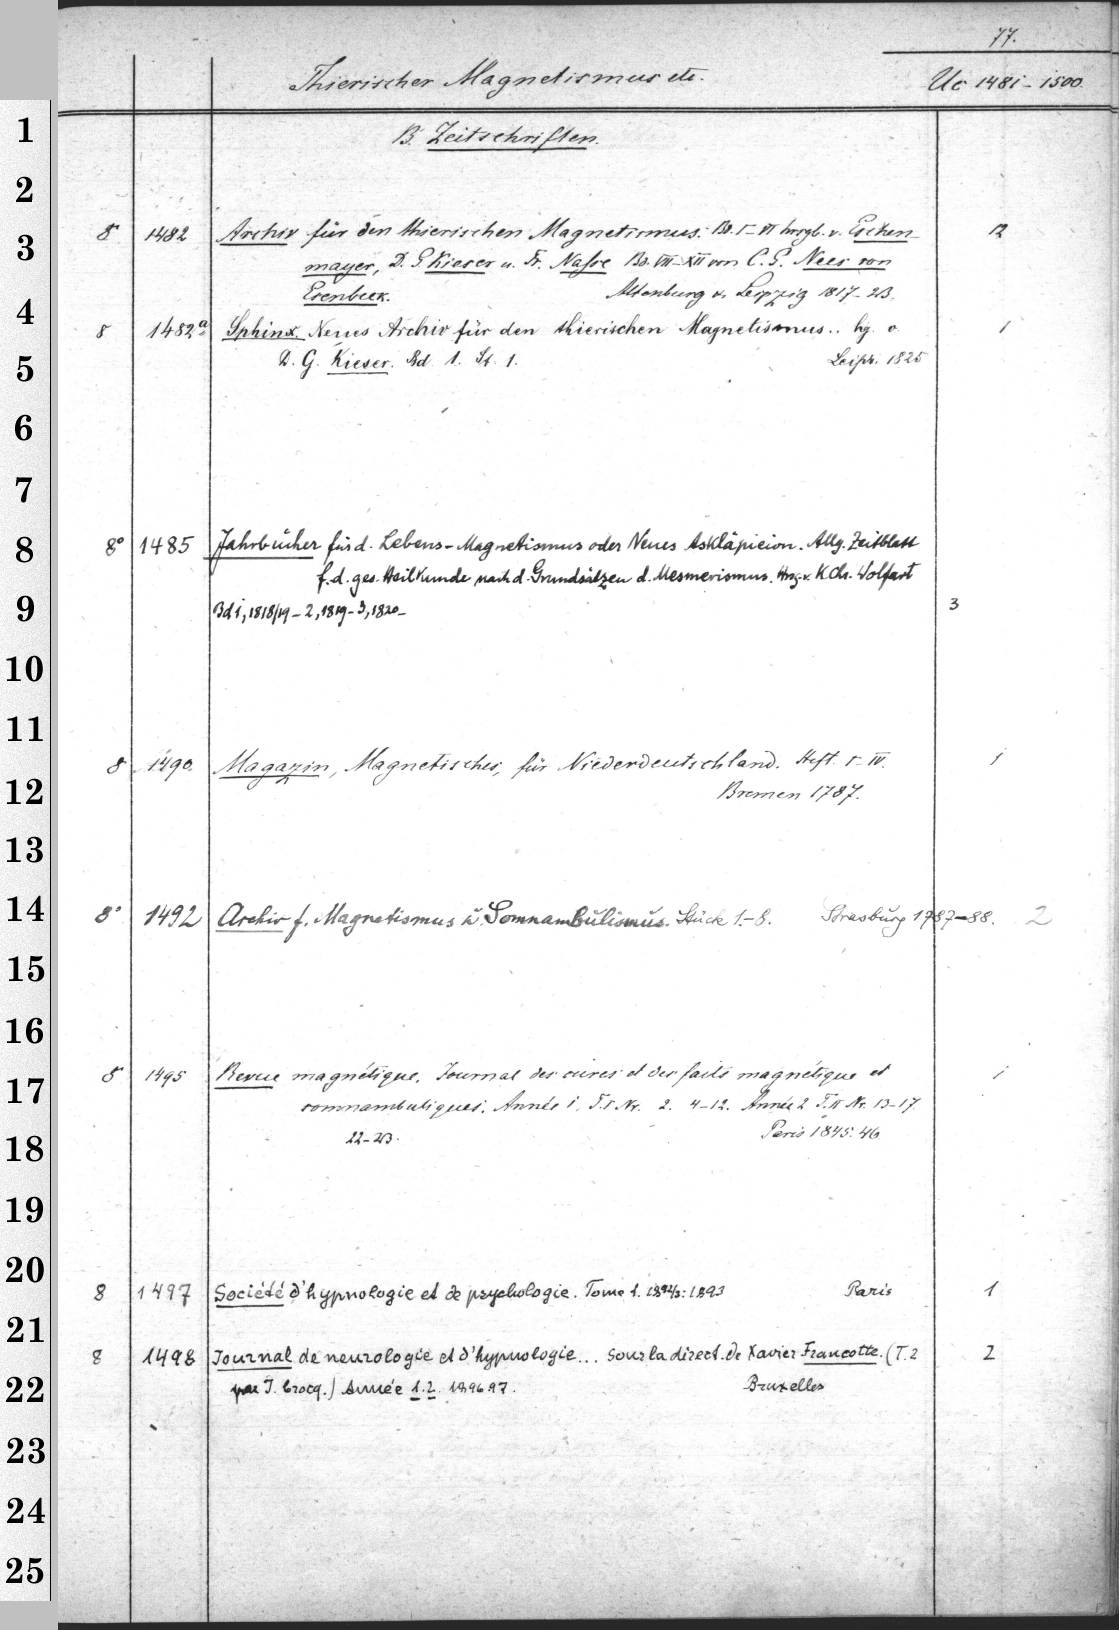 77.
Thierischer Magnetismus etc. Uc 1481-1500
B. Zeitschriften.
8 1482 Archiv für den thierischen Magnetismus. Bd. I-VI hrsgb. v. Eschen- 12
mayer, D. G Kieser u. Fr. Nasse Bd. VII-XII von C. G. Nees von
Esenbeck. Altenburg u. Leipzig 1817-23.
8 1482a Sphinx. Neues Archiv für den thierischen Magnetismus.. hg. v. 1
D. G. Kieser. Bd 1. St. 1. Leipz. 1825
8° 1485 Jahrbücher für d. Lebens-Magnetismus oder Neues Askläpieion. Allg. Zeitblatt
f. d. ges. Heilkunde nach d. Grundsätzen d. Mesmerismus. Hrsg. v. K. Chr. Wolfart
Bd 1, 1818/19-2, 1819-3, 1820- 3
8 1490. Magazin, Magnetisches, für Niederdeutschland. Heft. I-IV. 1
Bremen 1787.
8° 1492 Archiv f. Magnetismus u. Somnambulismus. Stück 1.-8. Strasburg 1787-88. 2
8 1495 Revue magnétique. Journal des cures et des faits magnétique et 1
somnambuliques. Année 1, T.I Nr. 2. 4-12. Année 2 T.II Nr. 13-17
22-23. Paris 1845.46
8 1497 Société d'hypnologie et de psychologie. Tome 1. 1892/3: 1893 Paris 1
8 1498 Journal de neurologie et d'hypnologie... sous la direct. de Xavier Francotte. (T. 2 2
par J. Crocq.) Année 1.2. 1896.97. Bruxelles
1
2
3
4
5
6
7
8
9
10
11
12
13
14
15
16
17
18
19
20
21
22
23
24
25